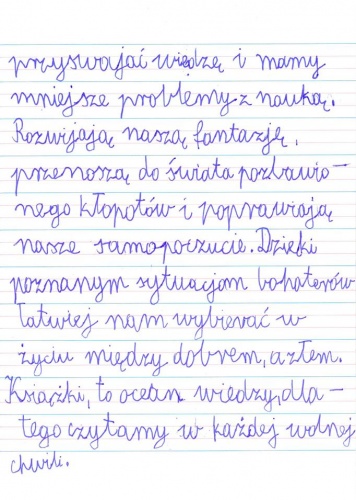 przyswajać wiedzę i mamy
mniejsze problemy z nauką.
Rozwijają naszą fantazję,
przenoszą do świata pozbawio-
nego kłopotów i poprawiają
nasze samopoczucie. Dzięki
poznanym sytuacjom bohaterów
łatwiej nam wybierać w
życiu między dobrem, a złem.
Książki, to ocean wiedzy, dla-
tego czytamy w każdej wolnej
chwili.